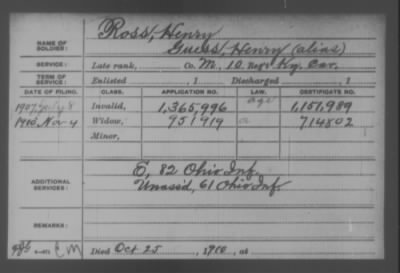 Ross, Henry
NAME OF SOLDIER: Guess, Henry (alias)
SERVICE: Late rank, Co. M, 10 Reg't Ky. Cav.
TERM OF SERVICE: Enlisted , 1 Discharged , 1
DATE OF FILING. CLASS. APPLICATION NO. LAW. CERTIFICATE NO.
1907, July 8 Invalid, 1,365,996 age 1,151,989
1910, Nov 4 Widow, 951919 a 714802
Minor,
ADDITIONAL SERVICES: E, 82 Ohio Inf.
Unass'd, 61 Ohio Inf.
REMARKS:
C M Died Oct 25, 1910, at